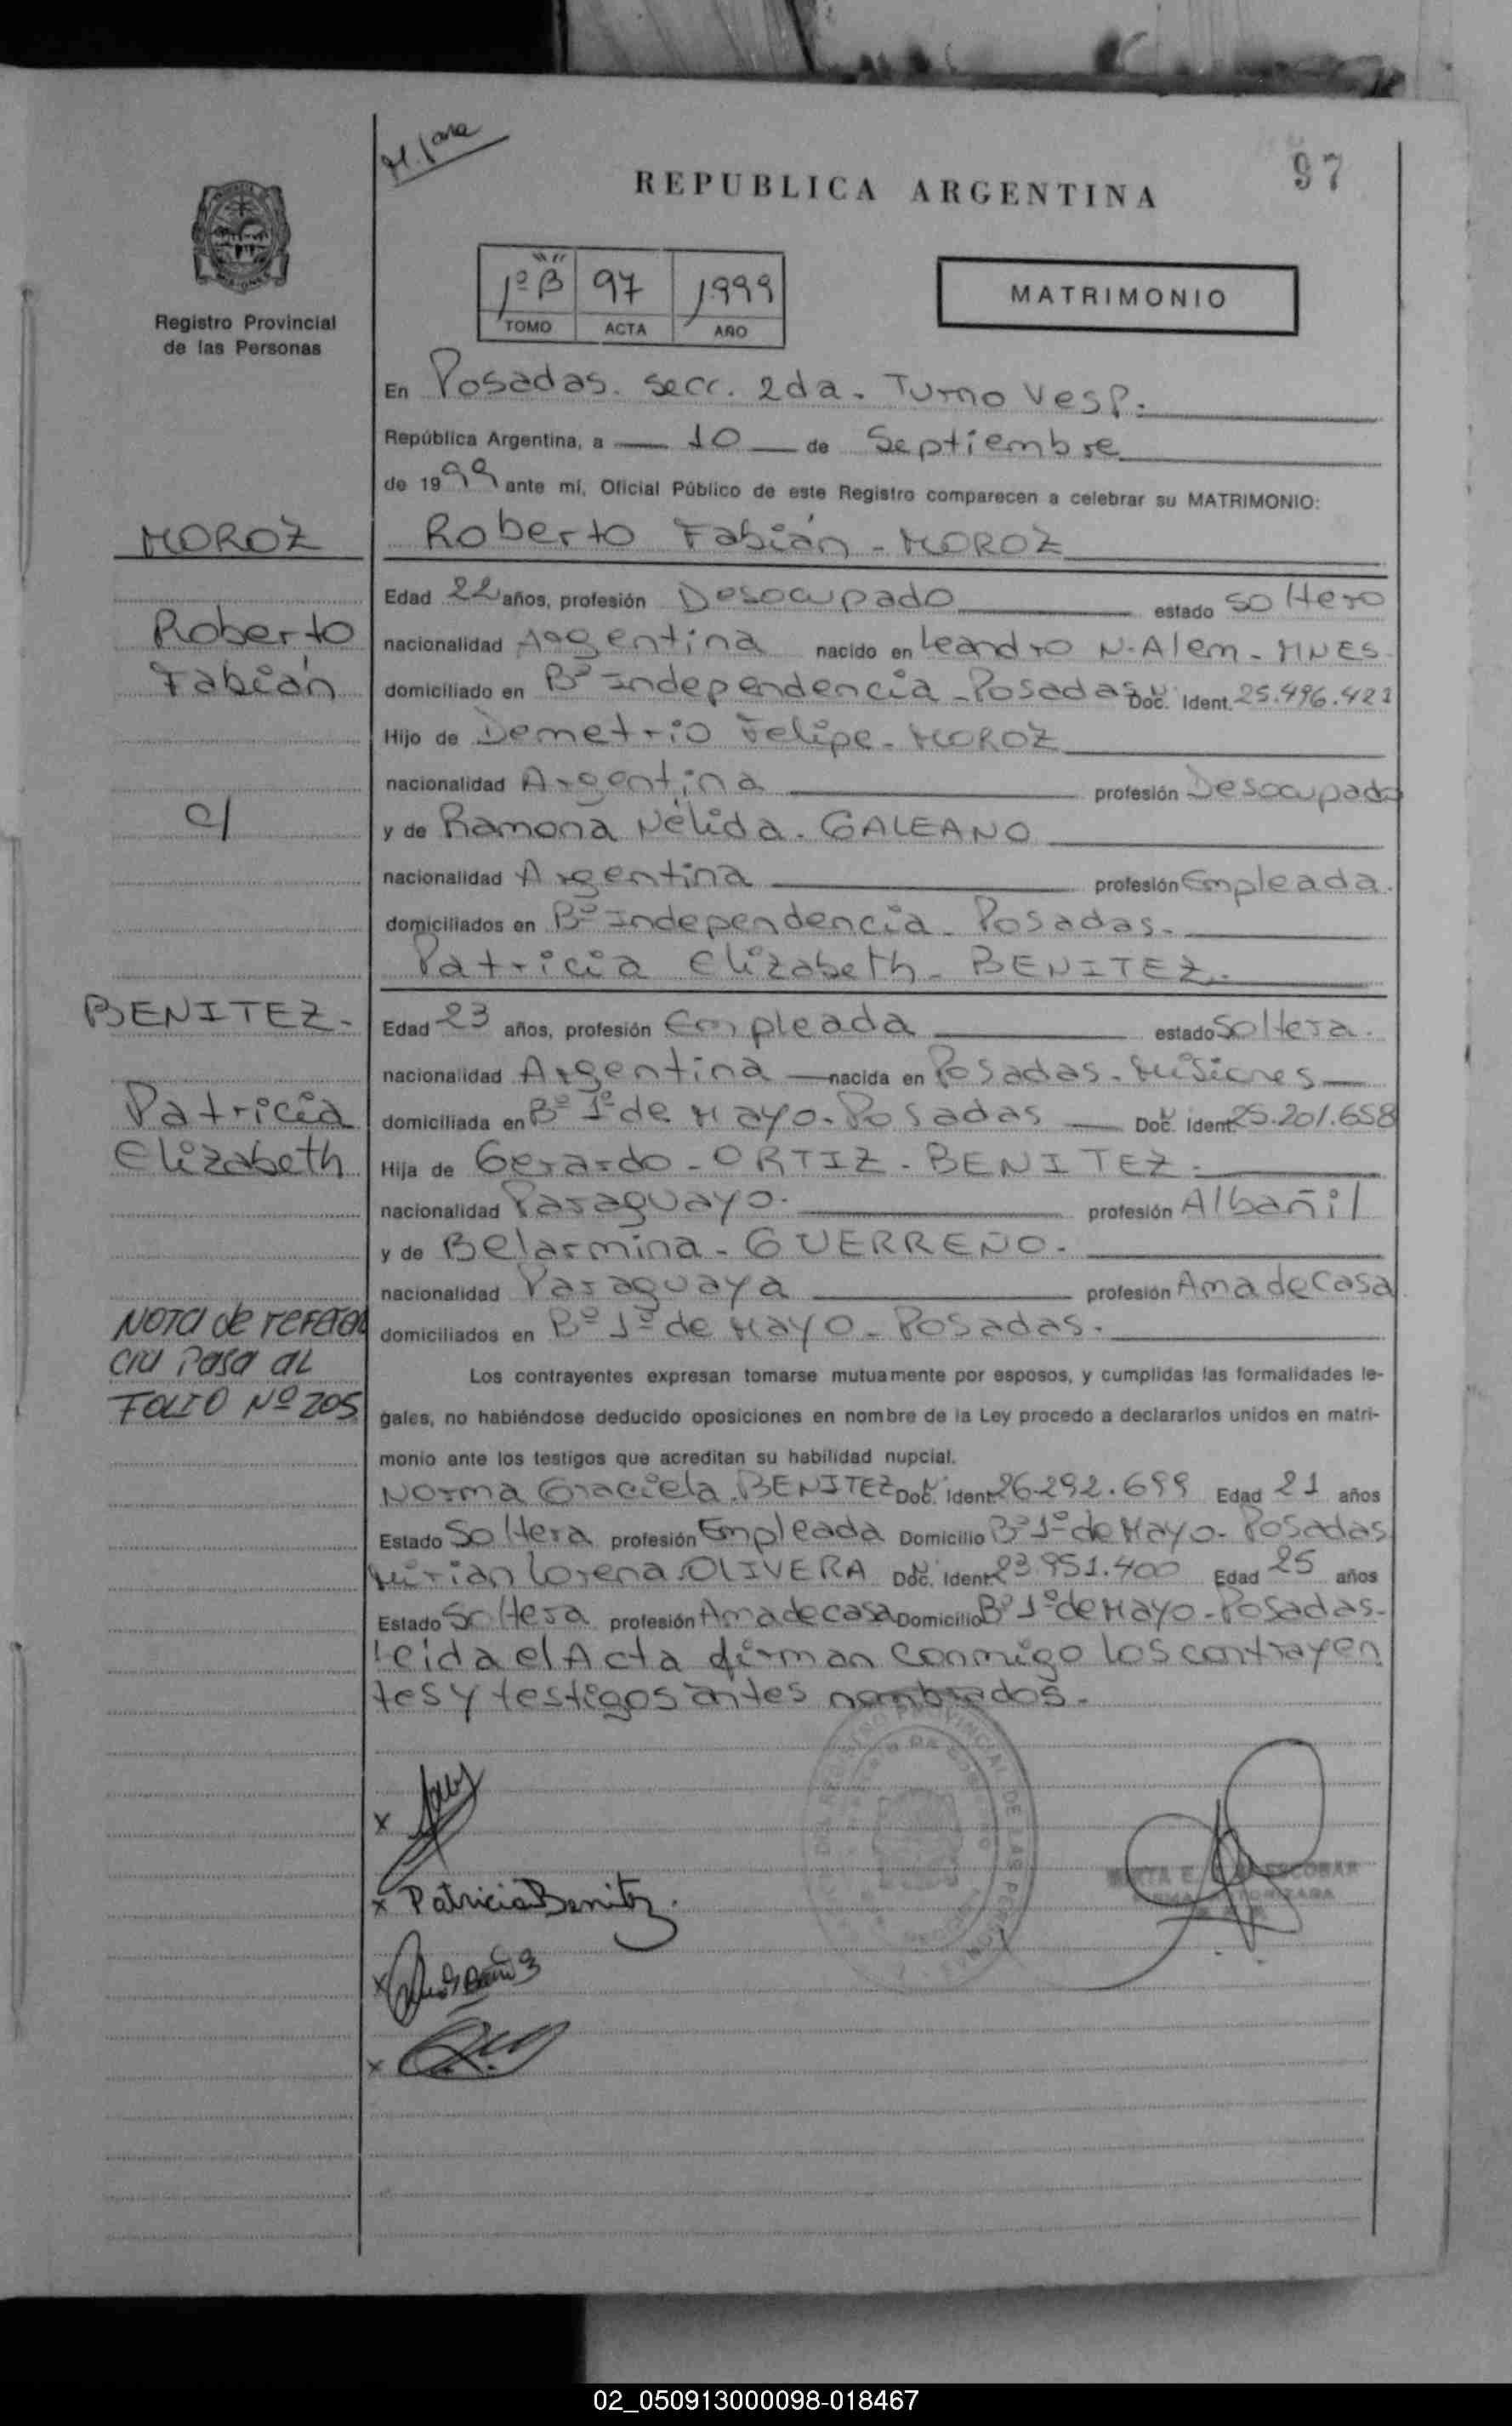 97
REPUBLICA ARGENTINA
1º "B" 97 1999
TOMO ACTA AÑO
MATRIMONIO
Registro Provincial
de las Personas
En Posadas. secc. 2da. Turno Vesp.
República Argentina, a 10 de Septiembre
de 1999 ante mí, Oficial Público de este Registro comparecen a celebrar su MATRIMONIO:
MOROZ
Roberto Fabián - MOROZ
Edad 22 años, profesión Desocupado estado soltero
Roberto
nacionalidad Argentina nacido en Leandro N. Alem - MNES.
Fabián
domiciliado en Bº Independencia - Posadas Doc. Ident. 25.496.421
Hijo de Demetrio Felipe - MOROZ
nacionalidad Argentina profesión Desocupado
c/
y de Ramona Nélida - GALEANO
nacionalidad Argentina profesión Empleada.
domiciliados en Bº Independencia - Posadas.
Patricia Elizabeth - BENITEZ.
BENITEZ -
Edad 23 años, profesión Empleada estado Soltera.
nacionalidad Argentina nacida en Posadas - Misiones
Patricia
domiciliada en Bº 1º de Mayo - Posadas Doc. Ident. 25.201.658
Elizabeth
Hija de Gerardo - ORTIZ - BENITEZ.
nacionalidad Paraguayo. profesión Albañil
y de Belarmina - GUERREÑO.
nacionalidad Paraguaya profesión Ama de Casa
NOTA de referen
domiciliados en Bº 1º de Mayo - Posadas.
cia Pasa al
Los contrayentes expresan tomarse mutuamente por esposos, y cumplidas las formalidades le-
FOLIO Nº 205
gales, no habiéndose deducido oposiciones en nombre de la Ley procedo a declararlos unidos en matri-
monio ante los testigos que acreditan su habilidad nupcial.
Norma Graciela BENITEZ Doc. Ident. 26.292.699 Edad 21 años
Estado Soltera profesión Empleada Domicilio Bº 1º de Mayo - Posadas
Mirian Lorena OLIVERA Doc. Ident. 23.951.400 Edad 25 años
Estado Soltera profesión Ama de casa Domicilio Bº 1º de Mayo - Posadas -
Leida el Acta firman conmigo los contrayen
tes y testigos antes nombrados.
x
x Patricia Benitez.
x
x
02_050913000098-018467